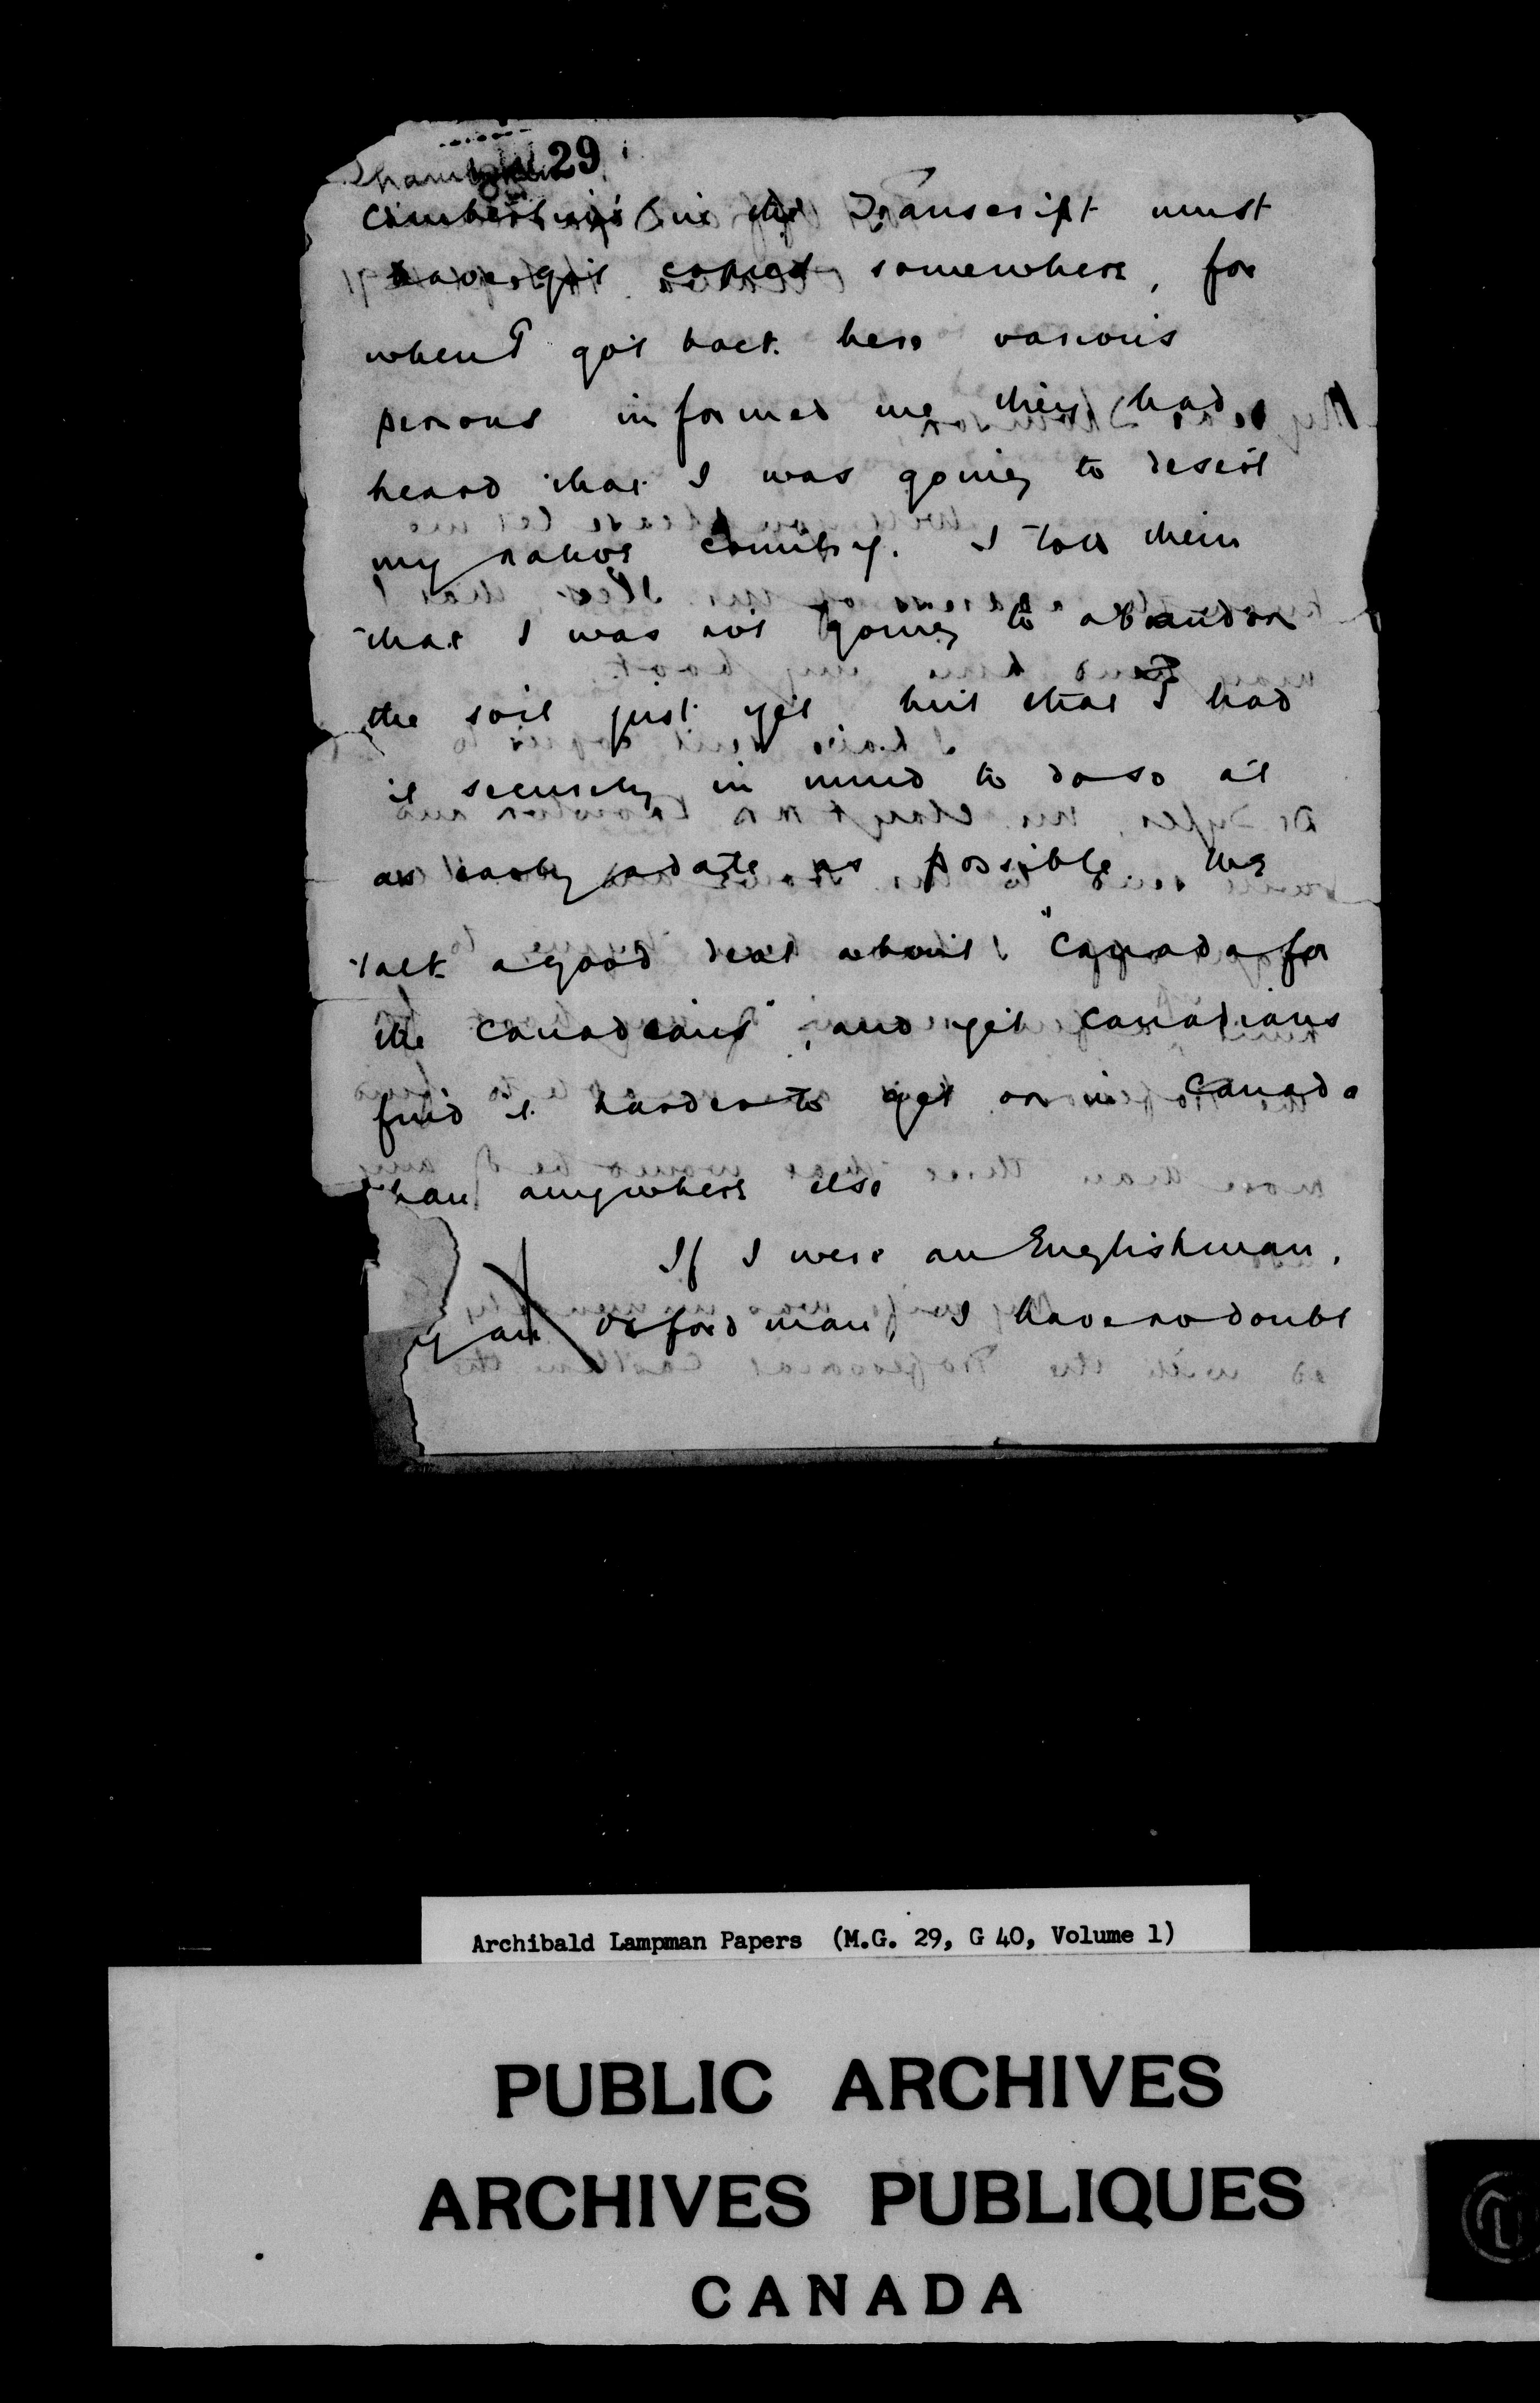 29
Chamberlin
Chamberlin's in the Transcript must
have got copied somewhere, for
when I got back here various
persons informed me they had
heard that I was going to desert
my native country. I told them
that I was not going to abandon
the soil just yet but that I had
it securely in mind to do so at
as early a date as possible. We
talk a good deal about "Canada for
the Canadians", and yet Canadians
find it harder to get on in Canada
than anywhere else
If I were an Englishman,
an Oxford man, I have no doubt
Archibald Lampman Papers (M.G. 29, G 40, Volume 1)
PUBLIC ARCHIVES
ARCHIVES PUBLIQUES
CANADA